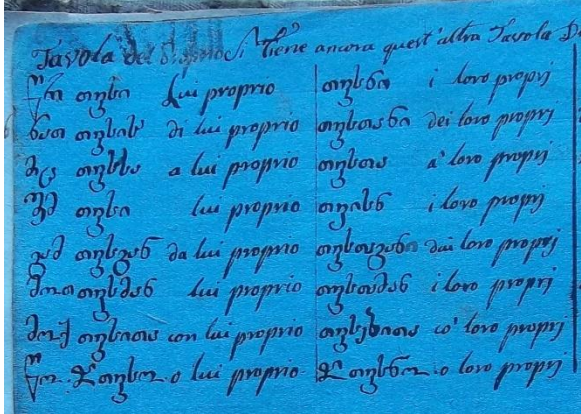 Tavola del Si tiene ancora quest'altra Tavola
თჳსი Lui proprio თჳსნი i loro proprj
ნათ თჳსის di lui proprio თჳსთანი dei loro proprj
მიც თჳსსა a lui proprio თჳსთა a' loro proprj
თჳსი lui proprio i loro proprj
თჳსგან da lui proprio თჳსთაგანი dai loro proprj
მოთ თჳსმან lui proprio თჳსთამან i loro proprj
მოქ თჳსითა con lui proprio თჳსებითა co' loro proprj
ჵ თჳსო o lui proprio ჵ თჳსნო o loro proprj